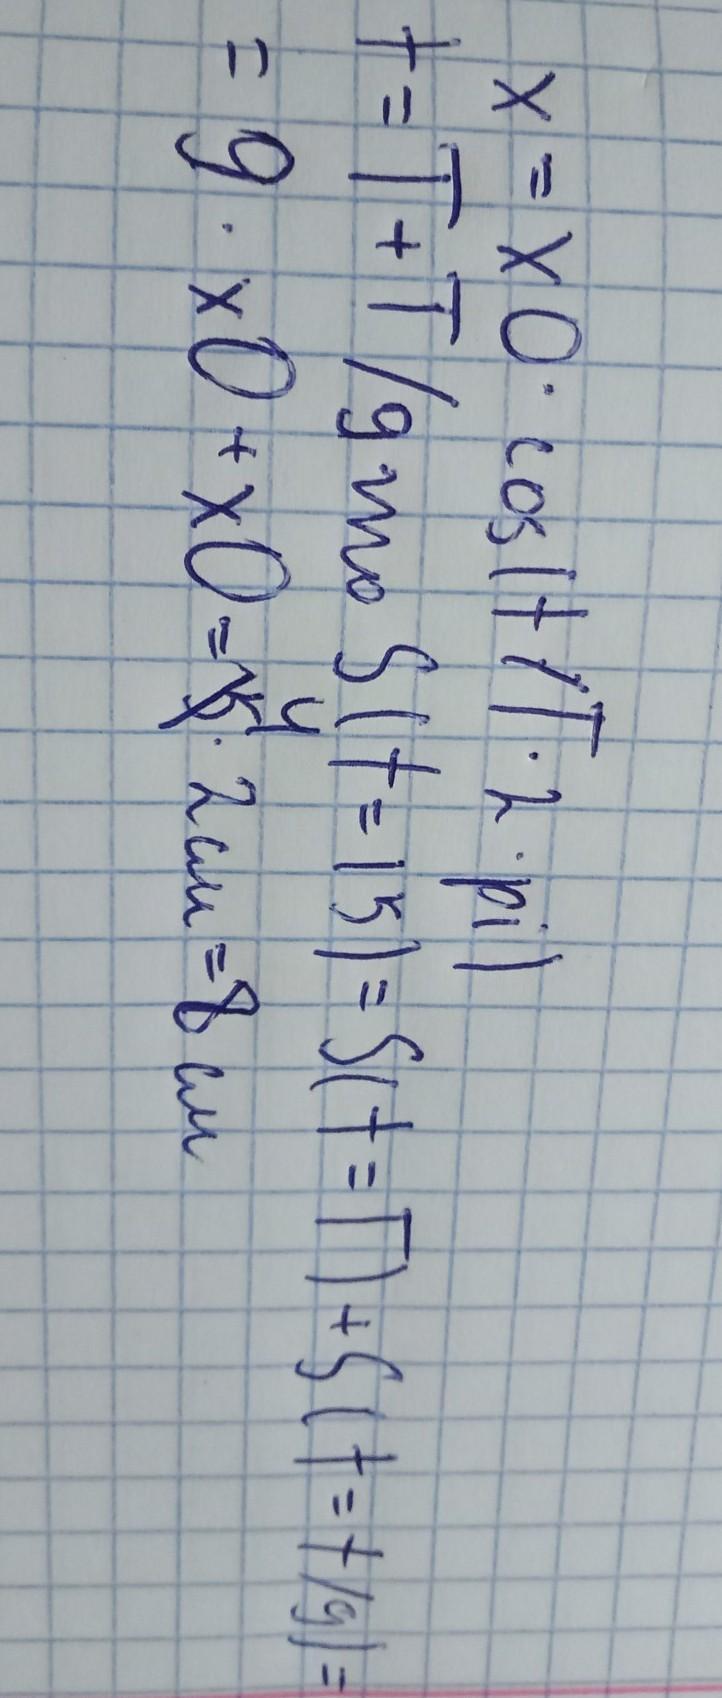 x = x0 · cos(t/T · 2 · pi)
t = T + T/g то S(t = 15) = S(t = T) + S(t = t/g) =
= g · x0 + x0 = 4 · 2см = 8 см